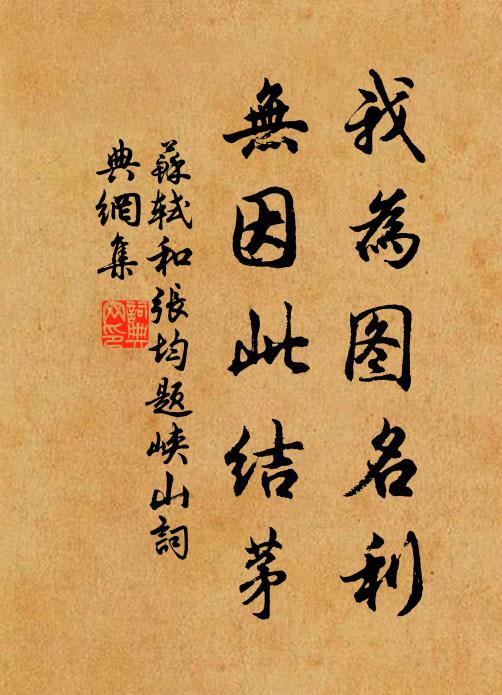 我為图名利
無因此結茅
蘇軾和張均題峽山詞
典網集
詞典
网印